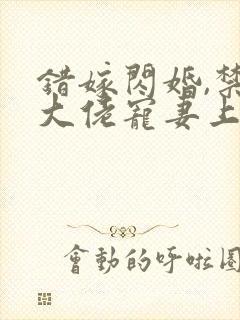 錯嫁閃婚,禁
大佬寵妻上
會動的呼啦圈